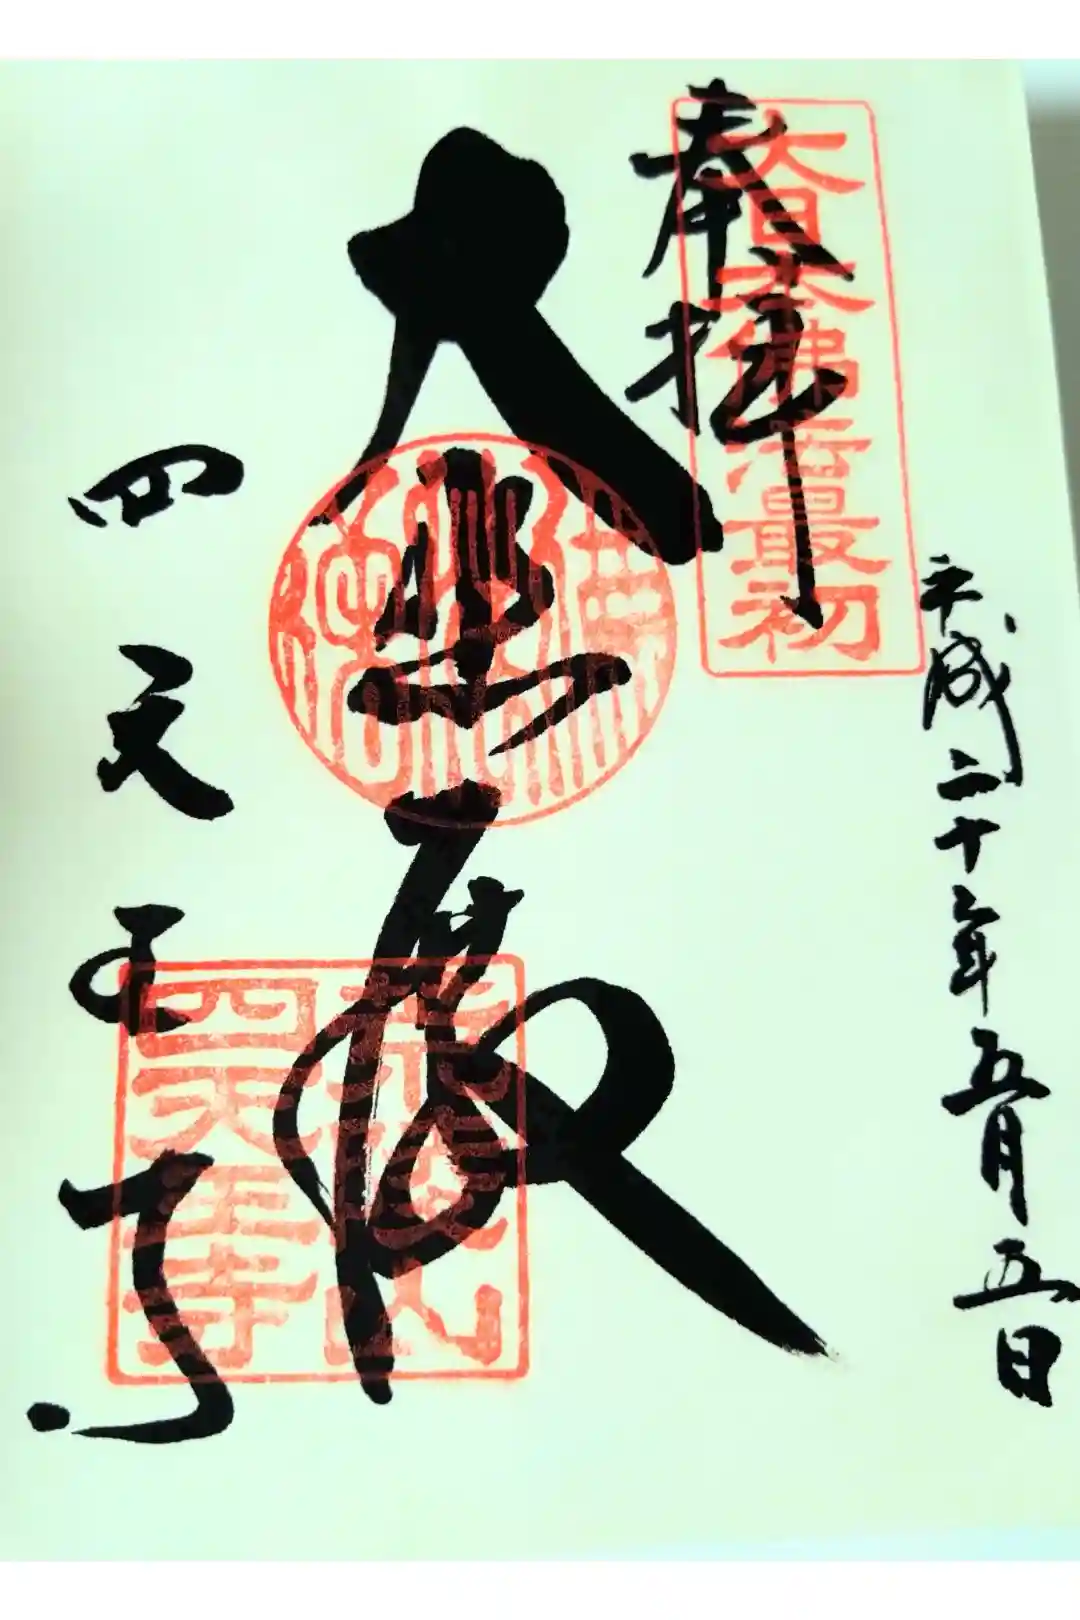 奉拝
大日本佛法最初
平成二十 年五月五日
大悲殿
荒陵山
四天王寺
四天王寺